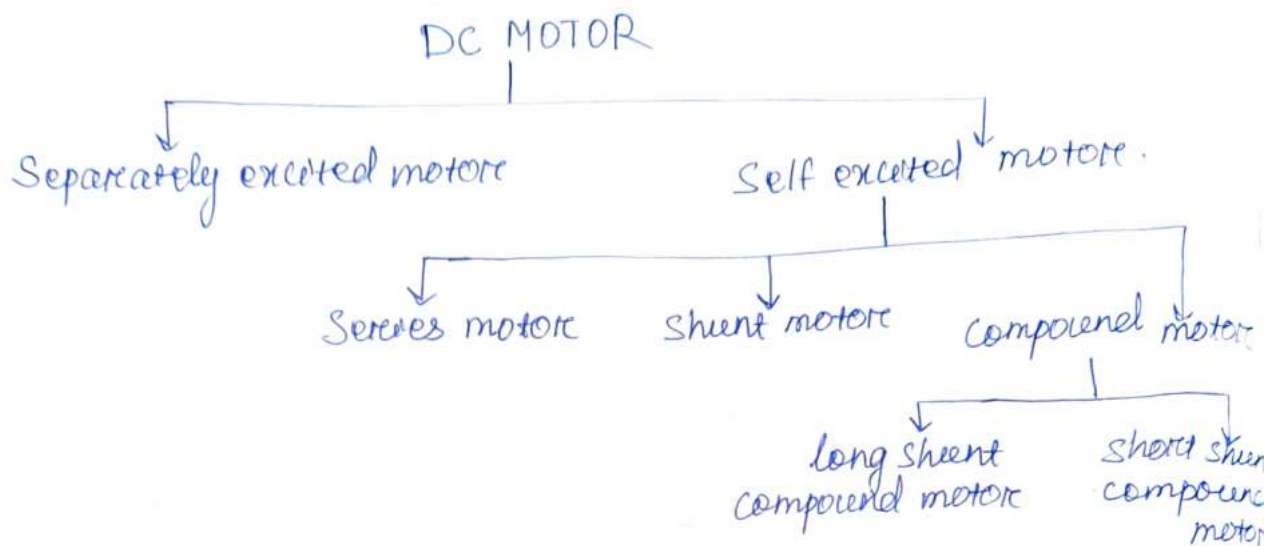 DC MOTOR
Separately excited motor
Self excited motor.
Series motor
Shunt motor
Compound motor
long shunt
compound motor
short shun
compound
motor